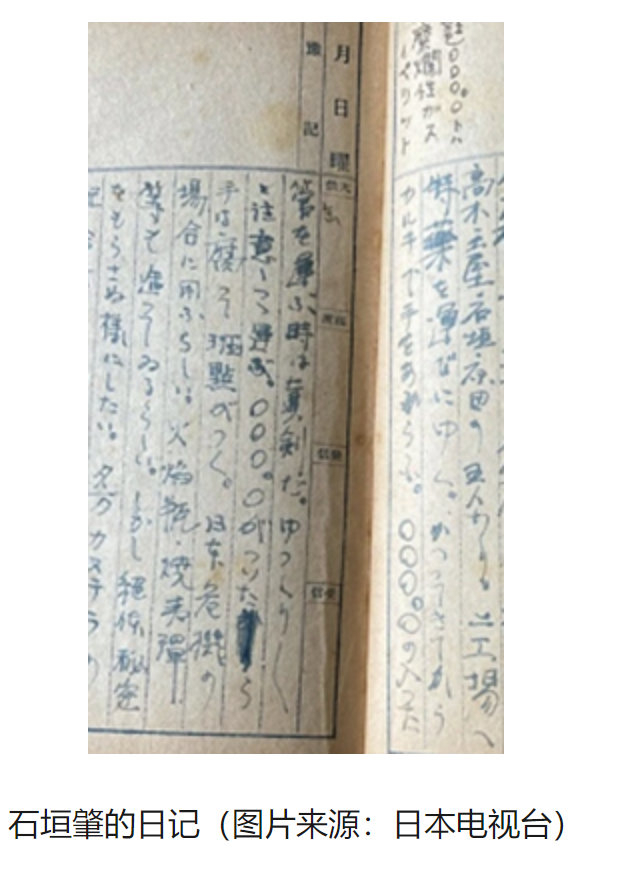 糜爛性ガス
イペリット
高木・玉屋・石垣・原田の五人 工場へ
特薬を運びにゆく。かついできてから
カルキで手をあらふ。〇〇〇〇の入った
月 日 曜
豫記
發信
受信
管を運ぶ時は真剣だ。ゆっくり
と注意しつゝ運ぶ。〇〇〇〇がついたら
手は腐って斑點がつく。日本危機の
場合に用ふらしい。火焔瓶・焼夷弾
等も造ってゐるらしい。しかし絶体秘密
をもらさぬ様にしたい。夕方カステラの
石垣肇的日记（图片来源：日本电视台）